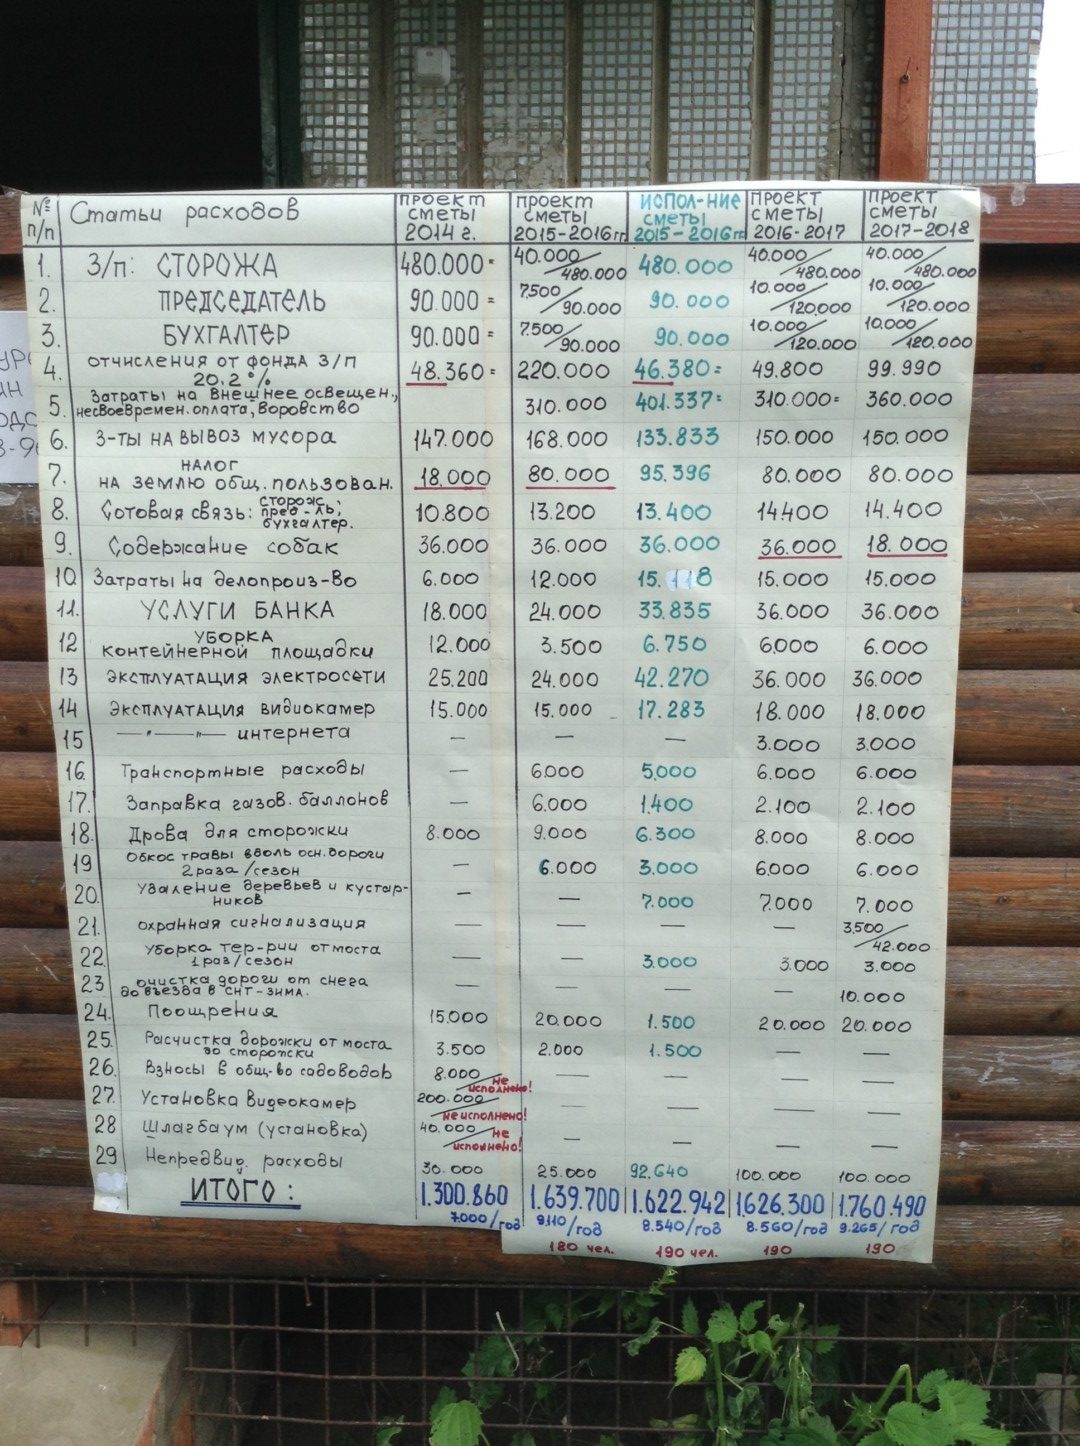 № п/п Статьи расходов проект сметы 2014 г. проект сметы 2015-2016гг. испол-ние сметы 2015-2016гг проект сметы 2016-2017 проект сметы 2017-2018
1. З/п: СТОРОЖА 480.000= 40.000/480.000 480.000 40.000/480.000 40.000/480.000
2. ПРЕДСЕДАТЕЛЬ 90.000= 7.500/90.000 90.000 10.000/120.000 10.000/120.000
3. БУХГАЛТЕР 90.000= 7.500/90.000 90.000 10.000/120.000 10.000/120.000
4. отчисления от фонда З/П 20.2% 48.360= 220.000 46.380= 49.800 99.990
5. Затраты на внешнее освещен., несвоевремен. оплата, воровство 310.000 401.337= 310.000= 360.000
6. З-ты на вывоз мусора 147.000 168.000 133.833 150.000 150.000
7. налог на землю общ. пользован. 18.000 80.000 95.396 80.000 80.000
8. Сотовая связь: сторож, пред-ль, бухгалтер. 10.800 13.200 13.400 14400 14.400
9. Содержание собак 36.000 36.000 36.000 36.000 18.000
10. Затраты на делопроиз-во 6.000 12.000 15.118 15.000 15.000
11. УСЛУГИ БАНКА 18.000 24.000 33.835 36.000 36.000
12 уборка контейнерной площадки 12.000 3.500 6.750 6.000 6.000
13 эксплуатация электросети 25.200 24.000 42.270 36.000 36.000
14 эксплуатация видиокамер 15.000 15.000 17.283 18.000 18.000
15 —"— —"— интернета — — — 3.000 3.000
16. Транспортные расходы — 6.000 5.000 6.000 6.000
17. Заправка газов. баллонов — 6.000 1.400 2.100 2.100
18. Дрова для сторожки 8.000 9.000 6.300 8.000 8.000
19 Обкос травы вдоль осн. дороги 2 раза/сезон — 6.000 3.000 6.000 6.000
20. Удаление деревьев и кустарников — — 7.000 7.000 7.000
21. охранная сигнализация — — — — 3.500/42.000
22. уборка тер-рии от моста 1 раз/сезон — — 3.000 3.000 3.000
23 очистка дороги от снега до въезда в СНТ-зима. — — — — 10.000
24. Поощрения 15.000 20.000 1.500 20.000 20.000
25. Расчистка дорожки от моста до сторожки 3.500 2.000 1.500 — —
26. Взносы в общ-во садоводов 8.000 не исполнено! — — — —
27. Установка видеокамер 200.000 не исполнено! — — — —
28 Шлагбаум (установка) 40.000 не исполнено! — — — —
29 Непредвид. расходы 30.000 25.000 92.640 100.000 100.000
ИТОГО: 1.300.860 1.639.700 1.622.942 1.626.300 1.760.490
7000/год 9.110/год 8.540/год 8.560/год 9.265/год
180 чел. 190 чел. 190 190